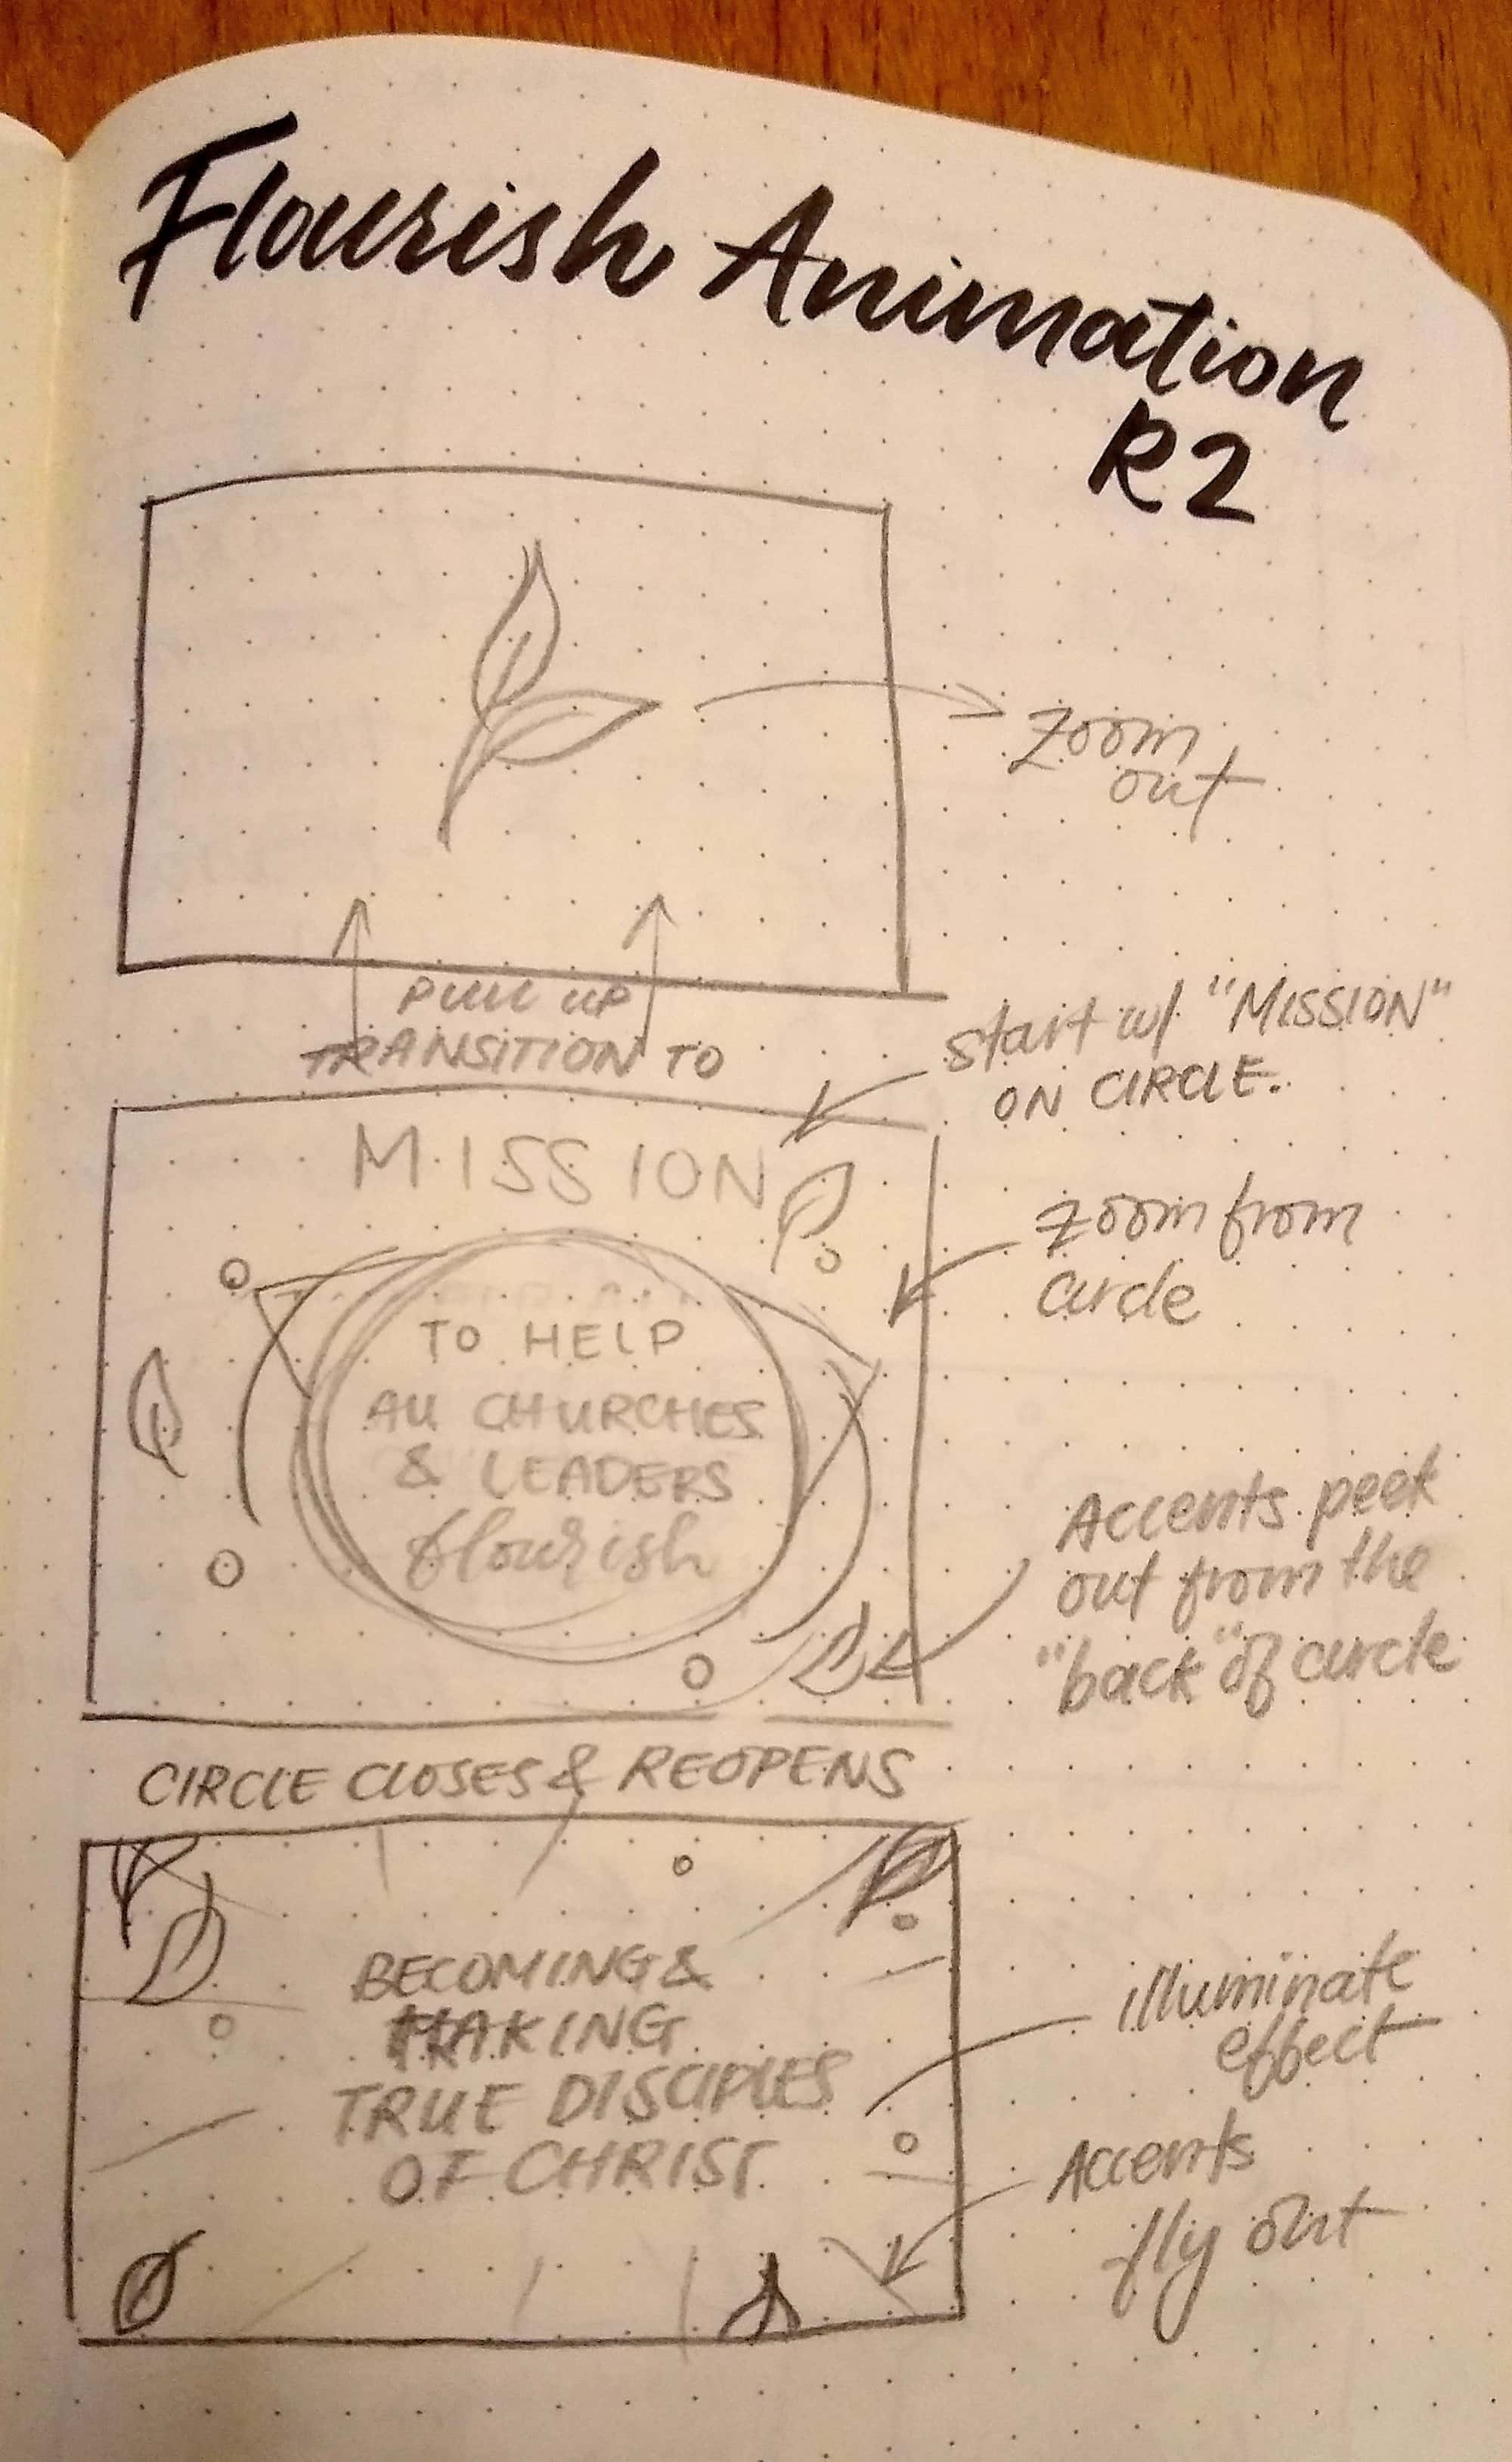 Flourish Animation
R2
Zoom
out
PULL UP
TRANSITION TO
start w/ "MISSION"
ON CIRCLE.
MISSION
Zoom from
circle
TO HELP
ALL CHURCHES
& LEADERS
flourish
Accents peek
out from the
"back" of circle
CIRCLE CLOSES & REOPENS
BECOMING &
MAKING
TRUE DISCIPLES
OF CHRIST
illuminate
effect
Accents
fly out